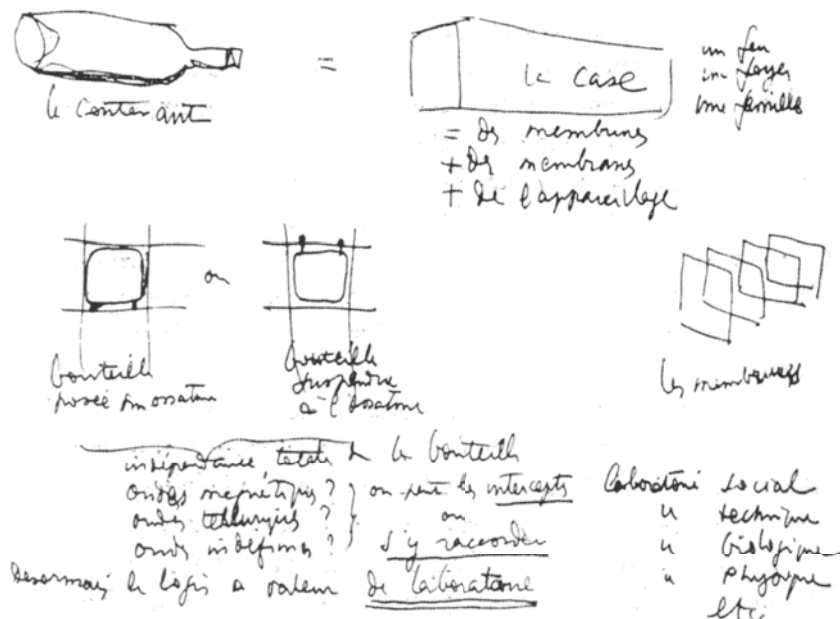 le contenant
=
la case
un feu
un foyer
une famille
= des membrures
+ des membranes
+ de l'appareillage
ou
bouteille
posée sur ossature
bouteille
suspendue
à l'ossature
les membranes
indépendance totale de la bouteille
ondes magnétiques ?
ondes telluriques ?
ondes indéfinies ?
on peut les intercepter
ou
s'y raccorder
Désormais le logis a valeur de laboratoire
laboratoire social
" technique
" biologique
" physique
etc.